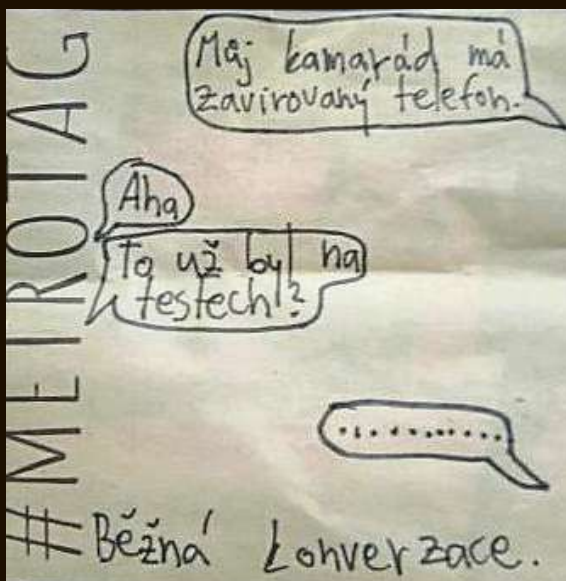 #METROTAG
Můj kamarád má
zavirovaný telefon.
Aha
To už byl na
testech?
...........
Běžná konverzace.